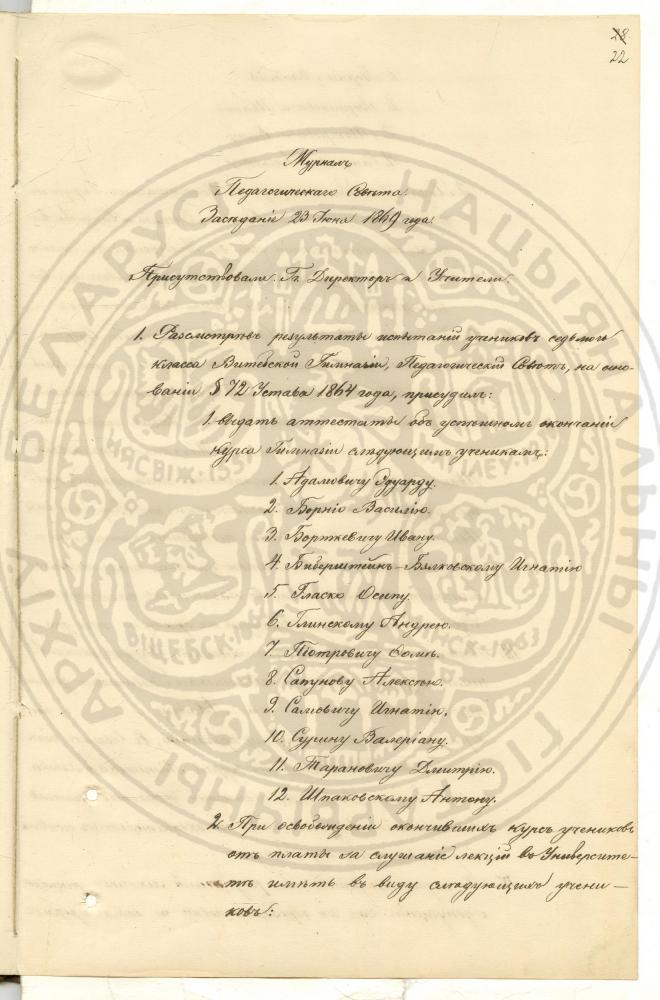 28
22
Журналъ
Педагогическаго Совѣта.
Засѣданіе 23 Іюня 1869 года.
Присутствовали: Гг. Директоръ и Учители.
1. Разсмотрѣвъ результаты испытаній учениковъ седьмого
класса Витебской Гимназіи, Педагогическій Совѣтъ, на осно-
ваніи § 72 Устава 1864 года, присудилъ:
1. выдать аттестаты объ успѣшномъ окончаніи
курса Гимназіи слѣдующимъ ученикамъ:
1. Адамовичу Эдуарду.
2. Борніо Василію.
3. Борткевичу Ивану.
4. Биберштейнъ-Бялковскому Игнатію
5. Гласко Осипу.
6. Глинскому Андрею.
7. Піотровичу Ѳомѣ.
8. Сапунову Алексѣю.
9. Самовичу Игнатію.
10. Сурину Валеріану.
11. Тарановичу Дмитрію.
12. Шпаковскому Антону.
2. При освобожденіи окончившихъ курсъ учениковъ
отъ платы за слушаніе лекцій въ Университе-
тѣ имѣть въ виду слѣдующихъ учени-
ковъ:
НАЦЫЯНАЛЬНЫ
БЕЛАРУСІ
НЯСВІЖ